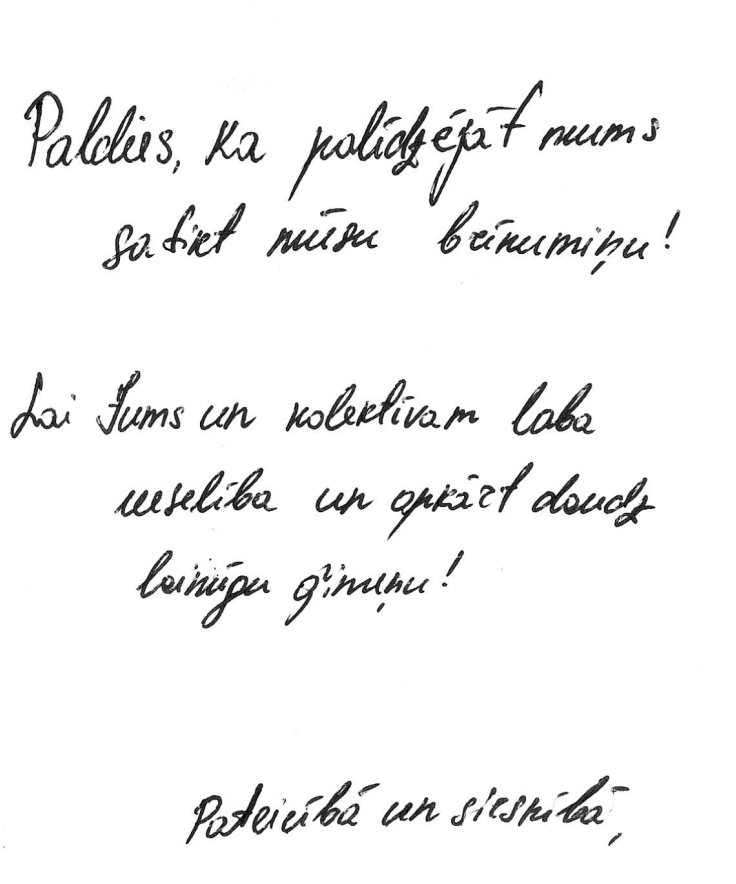 Paldies, ka palīdzējāt mums
satikt mūsu brīnumiņu!
Lai Jums un kolektīvam laba
veselība un apkārt daudz
laimīgu ģimeņu!
Pateicībā un sirsnībā,